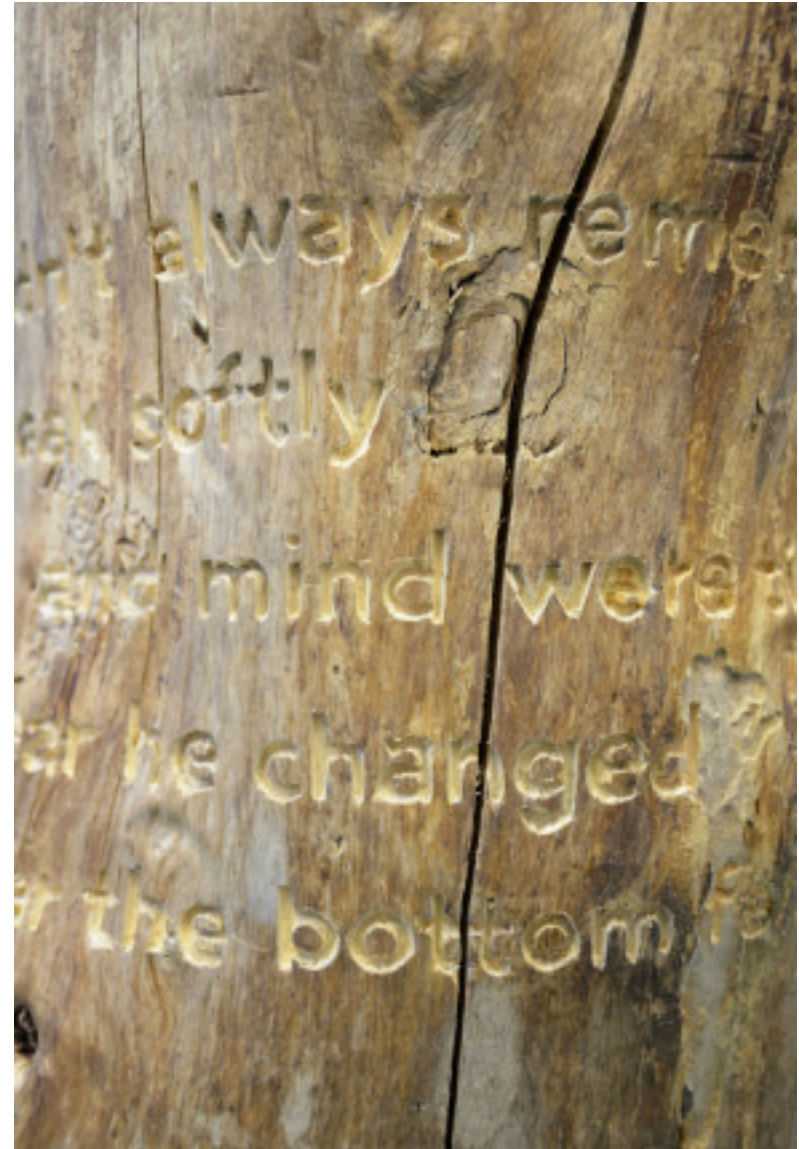 dn't always remem
eak softly
and mind were
ear he changed
er the bottom